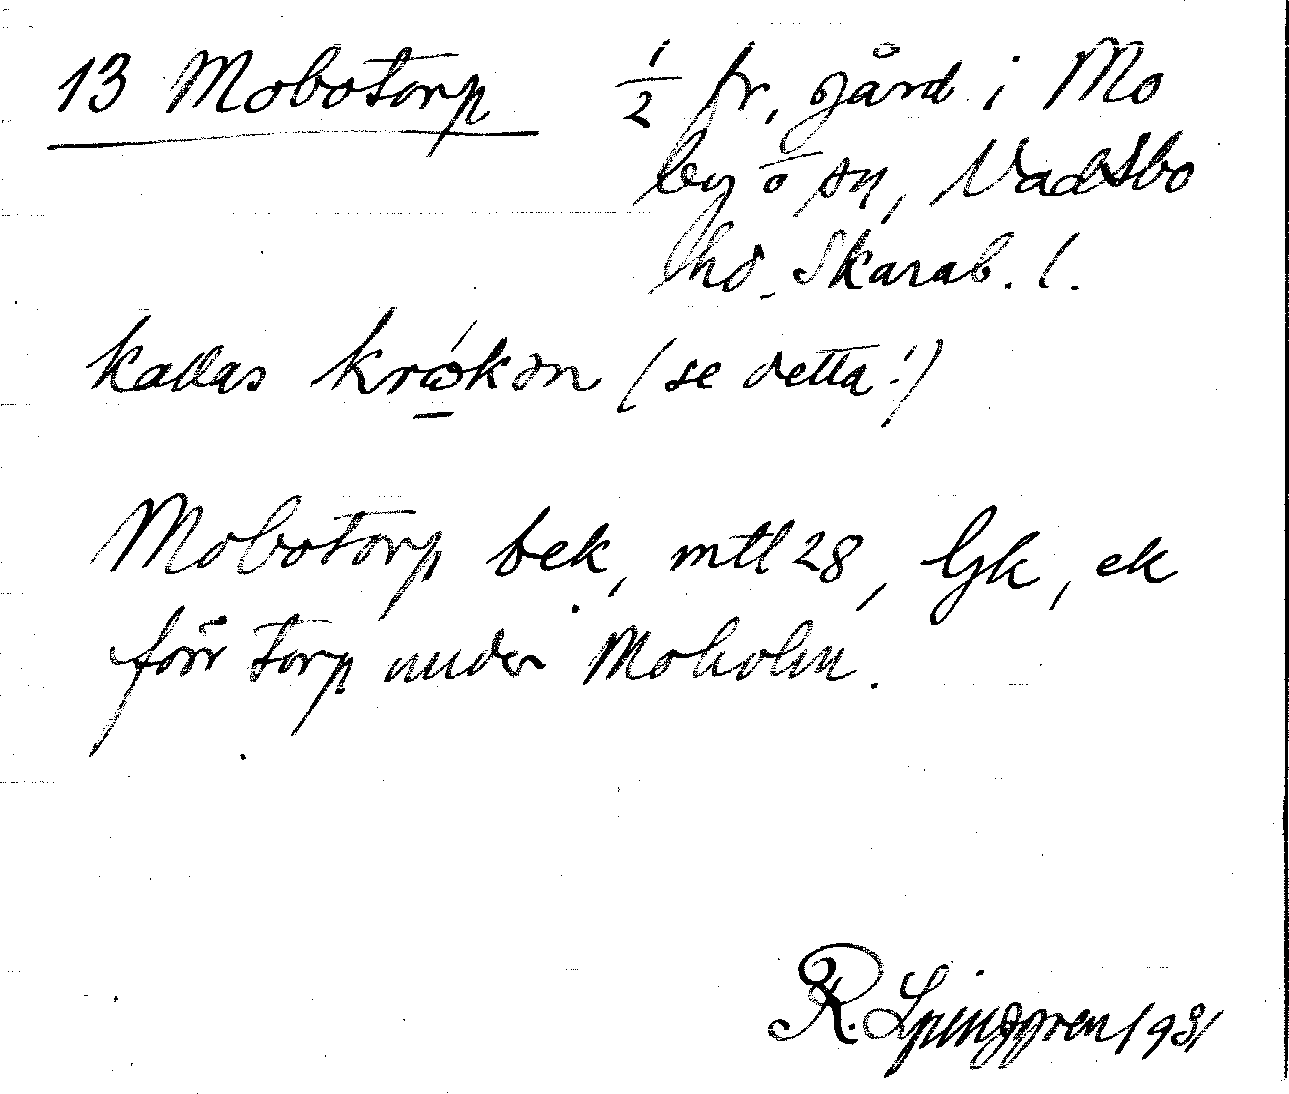 13 Mobotorp 1/2 fr. gård i Mo
by o sn, Vadsbo
hd. Skarab. l.
kallas krǿkən (se detta!)
Mobotorp bek, mtl 28, Gk, ek
förr torp under Moholm.
R. Ljunggren 1931